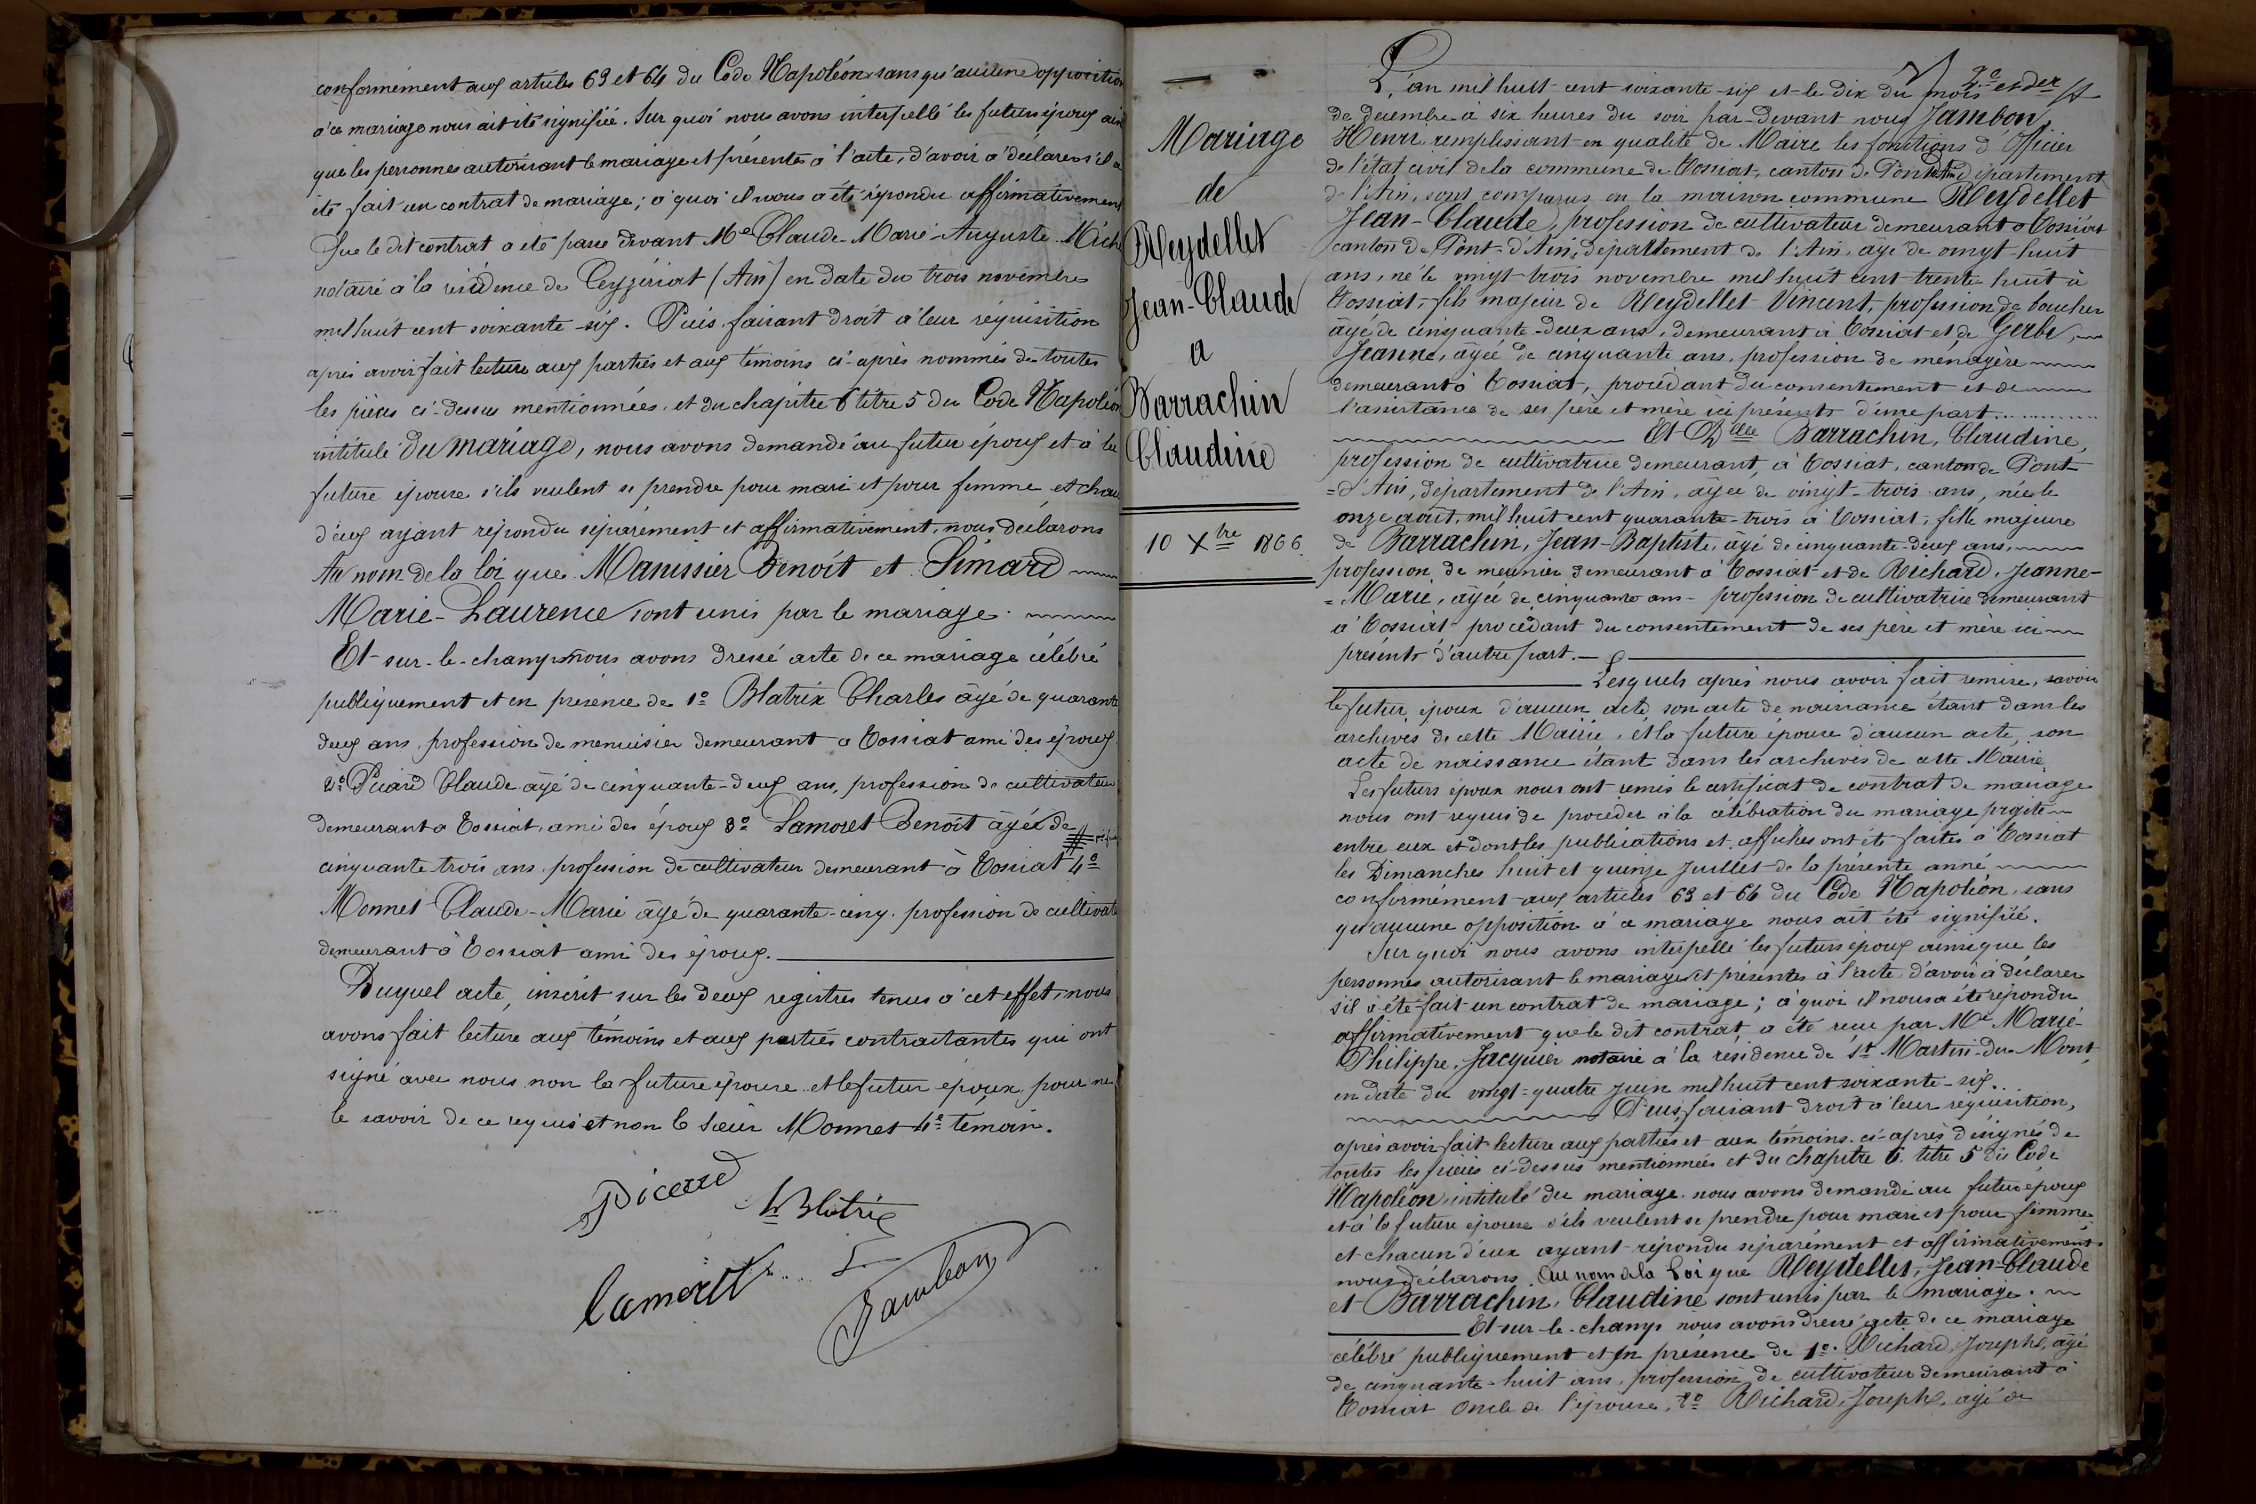 conformément aux articles 63 et 64 du Code Napoléon sans qu'aucune opposition
à ce mariage nous ait été signifiée. Sur quoi nous avons interpellé les futurs époux ainsi
que les personnes autorisant le mariage et présentes à l'acte, d'avoir à déclarer s'il a
été fait un contrat de mariage; à quoi il nous a été répondu affirmativement
Que le dit contrat a été passé devant Me Claude-Marie-Auguste Mich
notaire à la résidence de Ceyzériat (Ain) en date du trois novembre
mil huit cent soixante-six. Puis faisant droit à leur réquisition
après avoir fait lecture aux parties et aux témoins ci-après nommés de toutes
les pièces ci-dessus mentionnées et du chapitre 6 titre 5 du Code Napoléon
intitulé du mariage, nous avons demandé au futur époux et à la
future épouse s'ils veulent se prendre pour mari et pour femme et chacun
d'eux ayant répondu séparément et affirmativement, nous déclarons
Au nom de la loi que Manissier Benoît et Simard
Marie-Laurence sont unis par le mariage.
Et sur-le-champ nous avons dressé acte de ce mariage célébré
publiquement et en présence de 1o Blatrix Charles âgé de quarante
deux ans, profession de menuisier demeurant à Tossiat ami des époux
2o Picard Claude âgé de cinquante-deux ans, profession de cultivateur
demeurant à Tossiat, ami des époux 3o Lamoret Benoît âgé de
cinquante trois ans profession de cultivateur demeurant à Tossiat 4o
Monnet Claude-Marie âgé de quarante-cinq profession de cultivat
demeurant à Tossiat ami des époux.
Duquel acte, inscrit sur les deux registres tenus à cet effet, nous
avons fait lecture aux témoins et aux parties contractantes qui ont
signé avec nous non la future épouse et le futur époux pour ne
le savoir de ce requis et non le sieur Monnet 4e témoin.
Picard
Blatrix
Lamorett
Jambon
Mariage
de
Reydellet
Jean-Claude
a
Barrachin
Claudine
10 Xbre 1866
L'an mil huit cent soixante-six et le dix du mois
de décembre à six heures du soir par-devant nous Jambon
Henri remplissant en qualité de Maire les fonctions d'Officier
de l'état civil de la commune de Tossiat, canton de Pont d'Ain département
de l'Ain, sont comparus en la maison commune Reydellet
Jean-Claude, profession de cultivateur demeurant à Tossiat
canton de Pont-d'Ain, département de l'Ain, âgé de vingt-huit
ans, né le vingt-trois novembre mil huit cent trente-huit à
Tossiat, fils majeur de Reydellet Vincent, profession de boucher
âgé de cinquante-deux ans, demeurant à Tossiat et de Gerbe
Jeanne, âgée de cinquante ans, profession de ménagère
demeurant à Tossiat, procédant du consentement et de
l'assistance de ses père et mère ici présents d'une part
Et Dlle Barrachin, Claudine,
profession de cultivatrice demeurant à Tossiat, canton de Pont-
=d'Ain, département de l'Ain, âgée de vingt-trois ans, née le
onze août, mil huit cent quarante-trois à Tossiat, fille majeure
de Barrachin, Jean-Baptiste, âgé de cinquante-deux ans,
profession de meunier demeurant à Tossiat et de Richard, Jeanne-
=Marie, âgée de cinquante ans - profession de cultivatrice demeurant
à Tossiat procédant du consentement de ses père et mère ici
présents d'autre part.
Lesquels après nous avoir fait remise, savoir
le futur époux d'aucun acte, son acte de naissance étant dans les
archives de cette Mairie, et la future épouse d'aucun acte, son
acte de naissance étant dans les archives de cette Mairie
Les futurs époux nous ont remis le certificat de contrat de mariage
nous ont requis de procéder à la célébration du mariage projeté
entre eux et dont les publications et affiches ont été faites à Tossiat
les Dimanches huit et quinze Juillet de la présente anné
conformément aux articles 63 et 64 du Code Napoléon, sans
qu'aucune opposition à ce mariage nous ait été signifiée.
Sur quoi nous avons interpellé les futurs époux ainsi que les
personnes autorisant le mariage et présentes à l'acte d'avoir à déclarer
s'il a été fait un contrat de mariage; à quoi il nous a été répondu
affirmativement que le dit contrat a été reçu par Me Marie-
Philippe Jacquier notaire à la résidence de St Martin-du-Mont
en date du vingt-quatre juin mil huit cent soixante-six.
Puis, faisant droit à leur réquisition,
après avoir fait lecture aux parties et aux témoins ci-après désignés de
toutes les pièces ci-dessus mentionnées et du chapitre 6 titre 5 du Code
Napoléon intitulé du mariage, nous avons demandé au futur époux
et à la future épouse s'ils veulent se prendre pour mari et pour femme
et chacun d'eux ayant répondu séparément et affirmativement
nous déclarons Au nom de la Loi que Reydellet, Jean-Claude
et Barrachin, Claudine sont unis par le mariage.
Et sur-le-champ nous avons dressé acte de ce mariage
célébré publiquement et en présence de 1o Richard, Joseph, âgé
de cinquante-huit ans, profession de cultivateur demeurant à
Tossiat oncle de l'épouse, 2o Richard, Joseph, âgé de